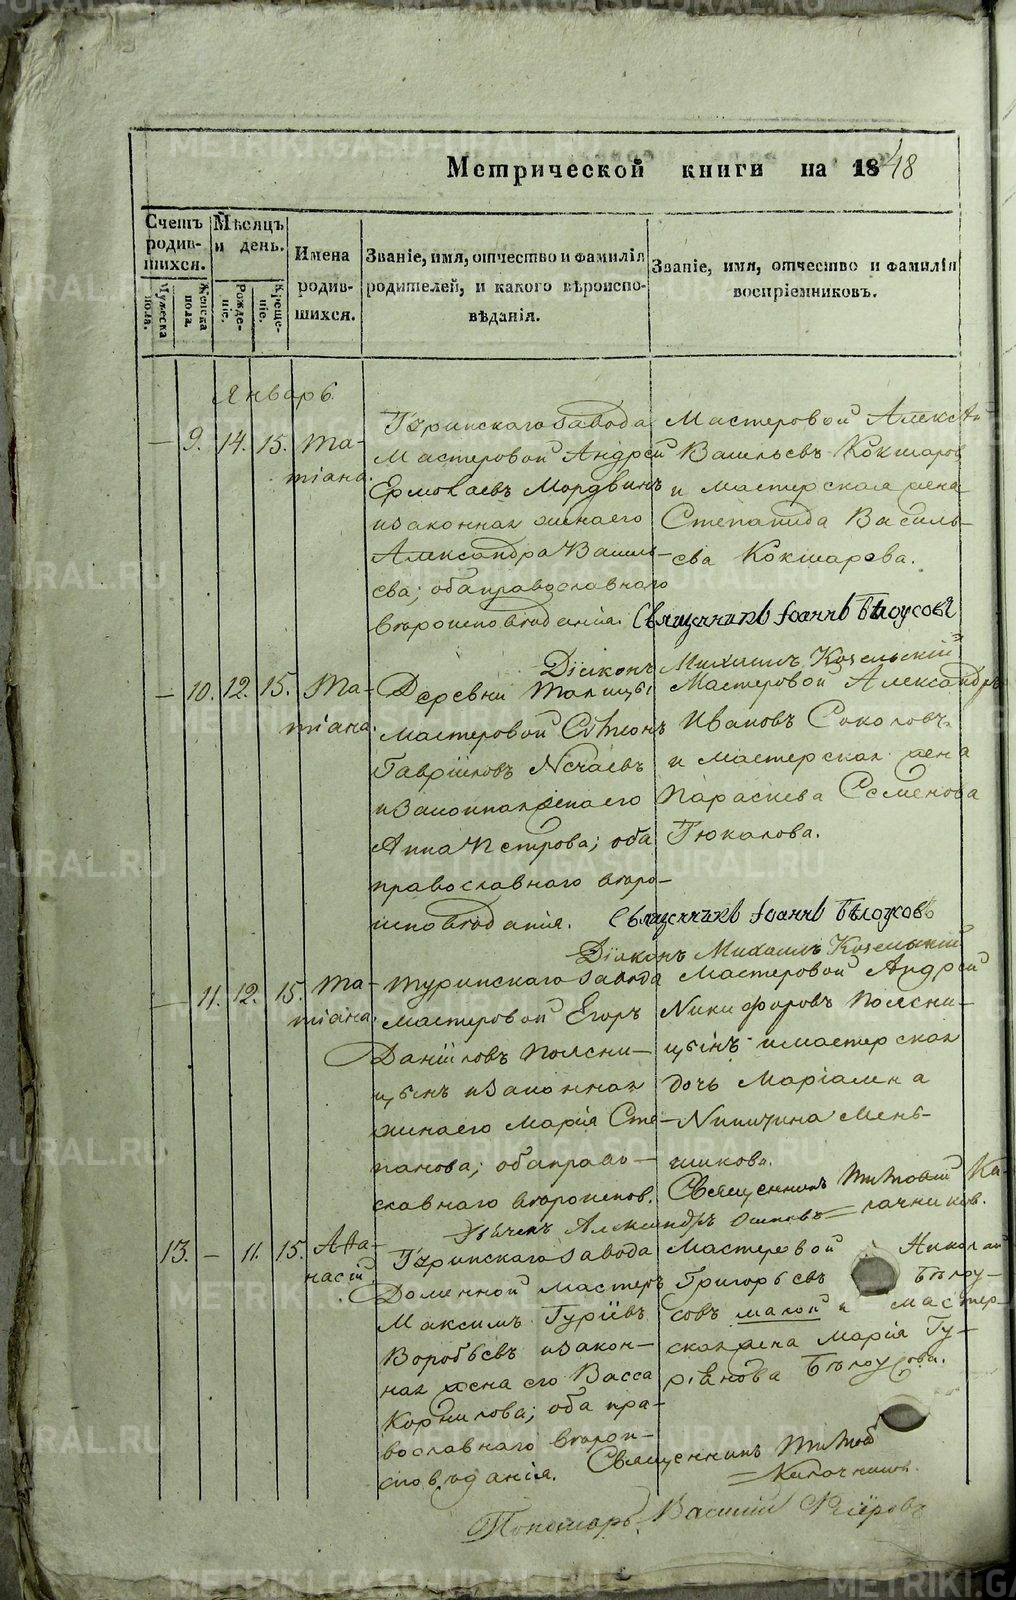 Метрической книги на 1848
Счетъ родившихся.
Мужеска пола.
Женска пола.
Мѣсяцъ и день.
Рожденіе.
Крещеніе.
Имена родившихся.
Званіе, имя, отчество и фамилія родителей, и какого вѣроисповѣданія.
Званіе, имя, отчество и фамилія воспріемниковъ.
Январь
— 9. 14. 15. Та-
тіана.
Туринскаго завода
Мастеровой Андрей
Ермолаевъ Мордвинъ
и законная жена его
Александра Василь-
ева; оба православнаго
вѣроисповѣданія.
Мастеровой Алексѣй
Васильевъ Кокшаровъ
и мастерская жена
Степанида Василь-
ева Кокшарова.
Священникъ Іоаннъ Бѣлоусовъ
Діаконъ Михаилъ Козельскій
— 10. 12. 15. Та-
тіана.
Деревни Талицы
мастеровой Симеонъ
Гавріиловъ Нечаевъ
и законная жена его
Анна Петрова; оба
православнаго вѣро-
исповѣданія.
Мастеровой Александръ
Ивановъ Соколовъ
и мастерская жена
Параскева Семенова
Тюкалова.
Священникъ Іоаннъ Бѣлоусовъ
Діаконъ Михаилъ Козельскій
— 11. 12. 15. Та-
тіана.
Туринскаго завода
мастеровой Егоръ
Даніиловъ Поясни-
цынъ и законная
жена его Марія Сте-
панова; оба право-
славнаго вѣроиспов.
Мастеровой Андрей
Никифоровъ Поясни-
цынъ и мастерская
дочь Маріамна
Никитина Мень-
шикова.
Священникъ Титовъ Ка-
лачниковъ.
Дьячекъ Александръ Осиповъ
13. — 11. 15. Аѳа-
насій.
Туринскаго завода
Доменной мастеръ
Максимъ Гуріевъ
Воробьевъ и закон-
ная жена его Васса
Корнилова; оба пра-
вославнаго вѣрои-
сповѣданія.
Мастеровой Николай
Григорьевъ Бѣлоу-
совъ малой и мастер-
ская жена Марія Гу-
ріанова Бѣлоусова.
Священникъ Титовъ
Калачниковъ.
Пономарь Василій
METRIKI.GASO-URAL.RU